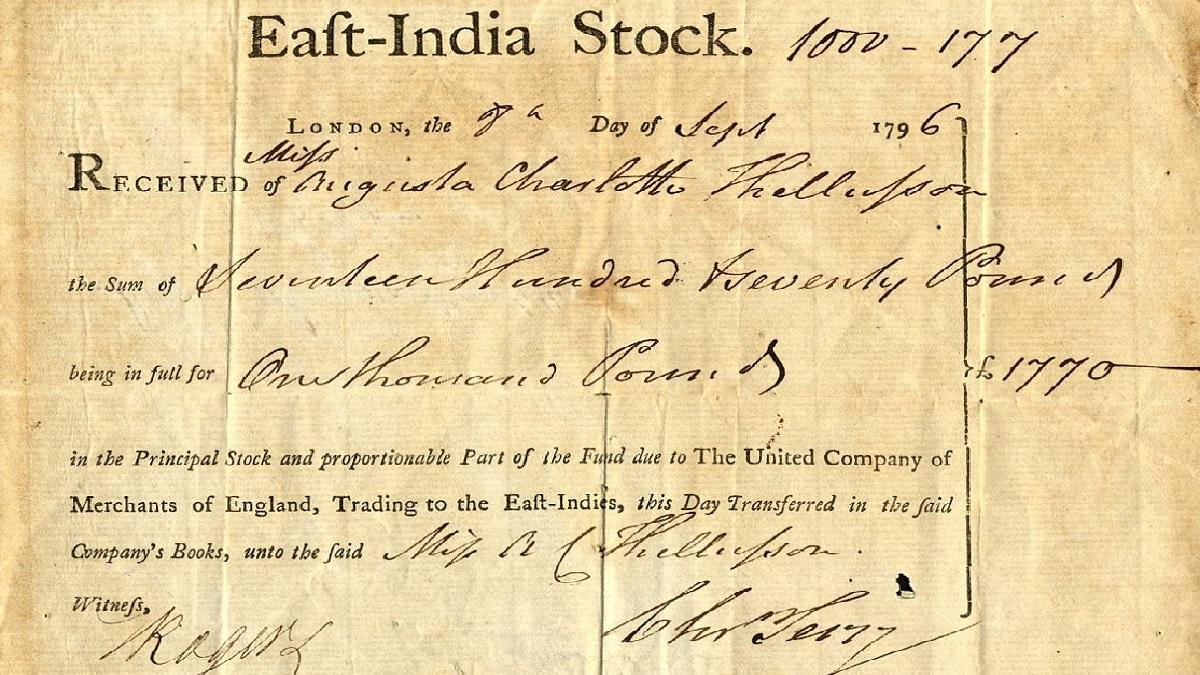 Eaſt-India Stock. 1000 - 177
LONDON, the 8th Day of Sept 1796
Miſs
RECEIVED of Augusta Charlotte Thelluſson
the Sum of Seventeen Hundred & seventy Pounds
being in full for One thousand Pounds £ 1770
in the Principal Stock and proportionable Part of the Fund due to The United Company of
Merchants of England, Trading to the Eaſt-Indies, this Day Transferred in the ſaid
Company's Books, unto the ſaid Miſs A C Thelluſson.
Witneſs,
Rogers Chr Terry